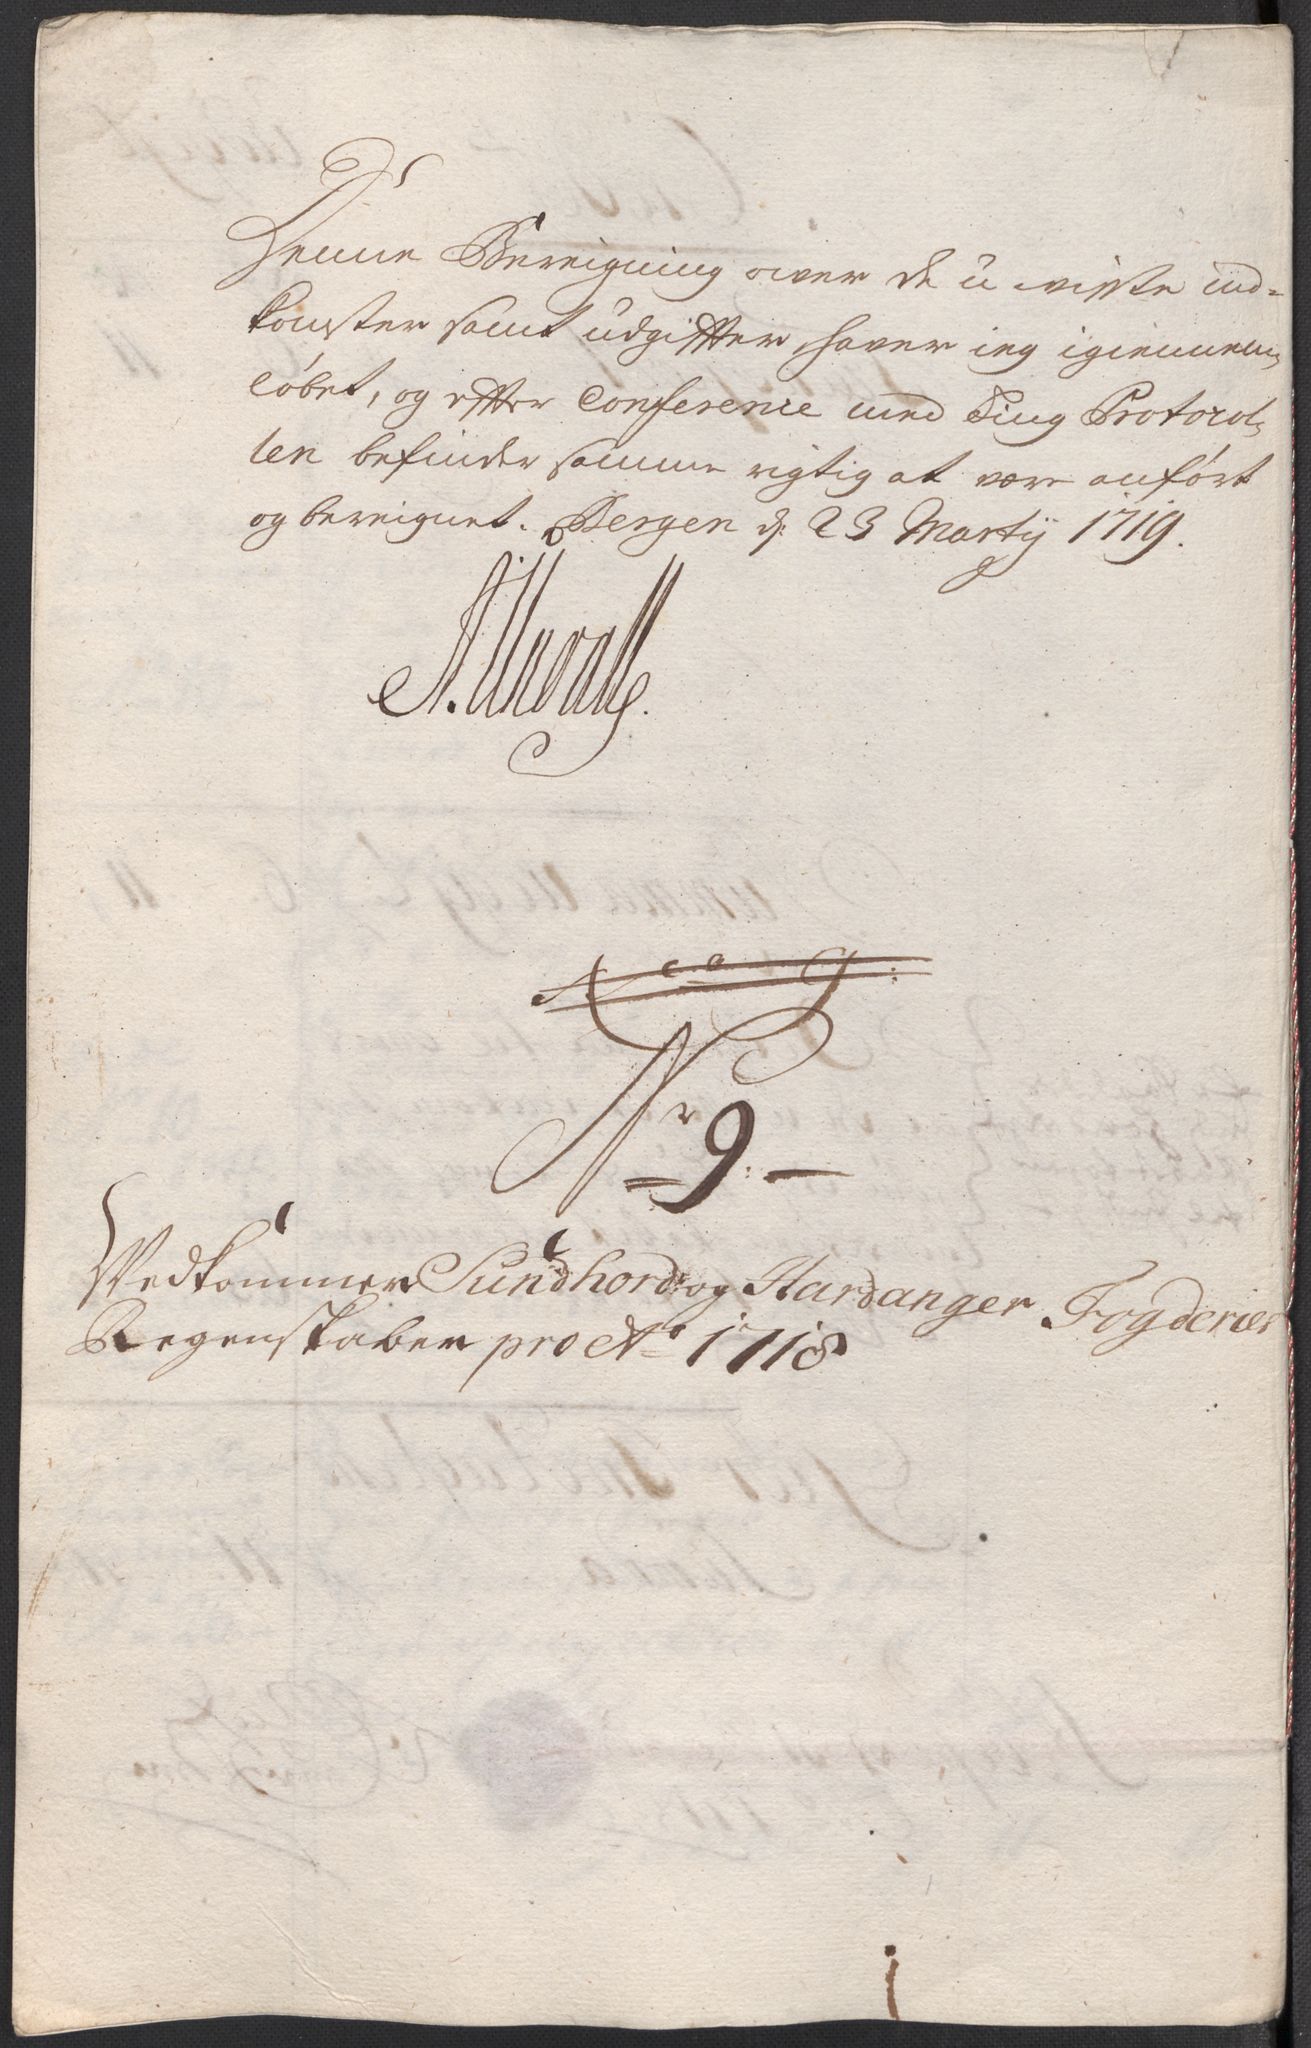 Denne Bereigning over de u-visse ind-
komster samt udgiffter, haver ieg igiennem,
løbet, og effter Conference med Ting Protocol,
len befinder samme rigtig at være anført
og bereignet. Bergen d: 23 Martij 1719.
Nr 9.
Vedkommer Sundhord: og Hardanger Fogderies
Regenskaber pro Ao 1718